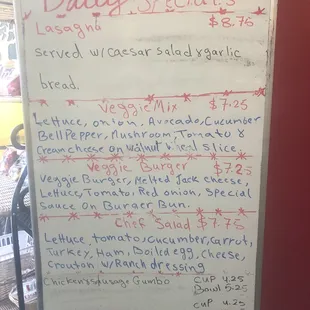 Daily Specials
Lasagna $8.75
served w/Caesar salad & garlic
bread.
Veggie Mix $7.25
Lettuce, onion, Avocado, Cucumber
Bell Pepper, Mushroom, Tomato &
Cream cheese on walnut slice.
Veggie Burger $7.25
Veggie Burger, Melted Jack cheese,
Lettuce, Tomato, Red onion, Special
Sauce on Burger Bun.
Chef Salad $7.75
Lettuce, tomato, cucumber, carrot,
Turkey, Ham, Boiled egg, Cheese,
Crouton w/Ranch dressing
Chicken & sausage Gumbo Cup 4.25
Bowl 5.25
Cup 4.25